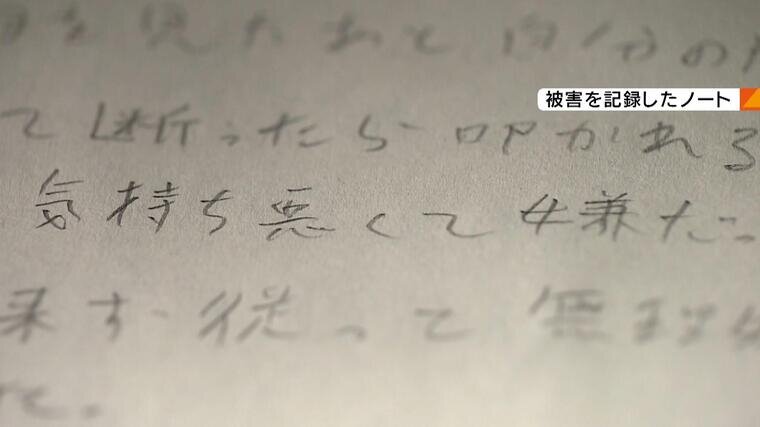 被害を記録したノート
を見たあと自分の
て断ったら叩かれる
気持ち悪くて嫌だっ
来ず従って無理
た。